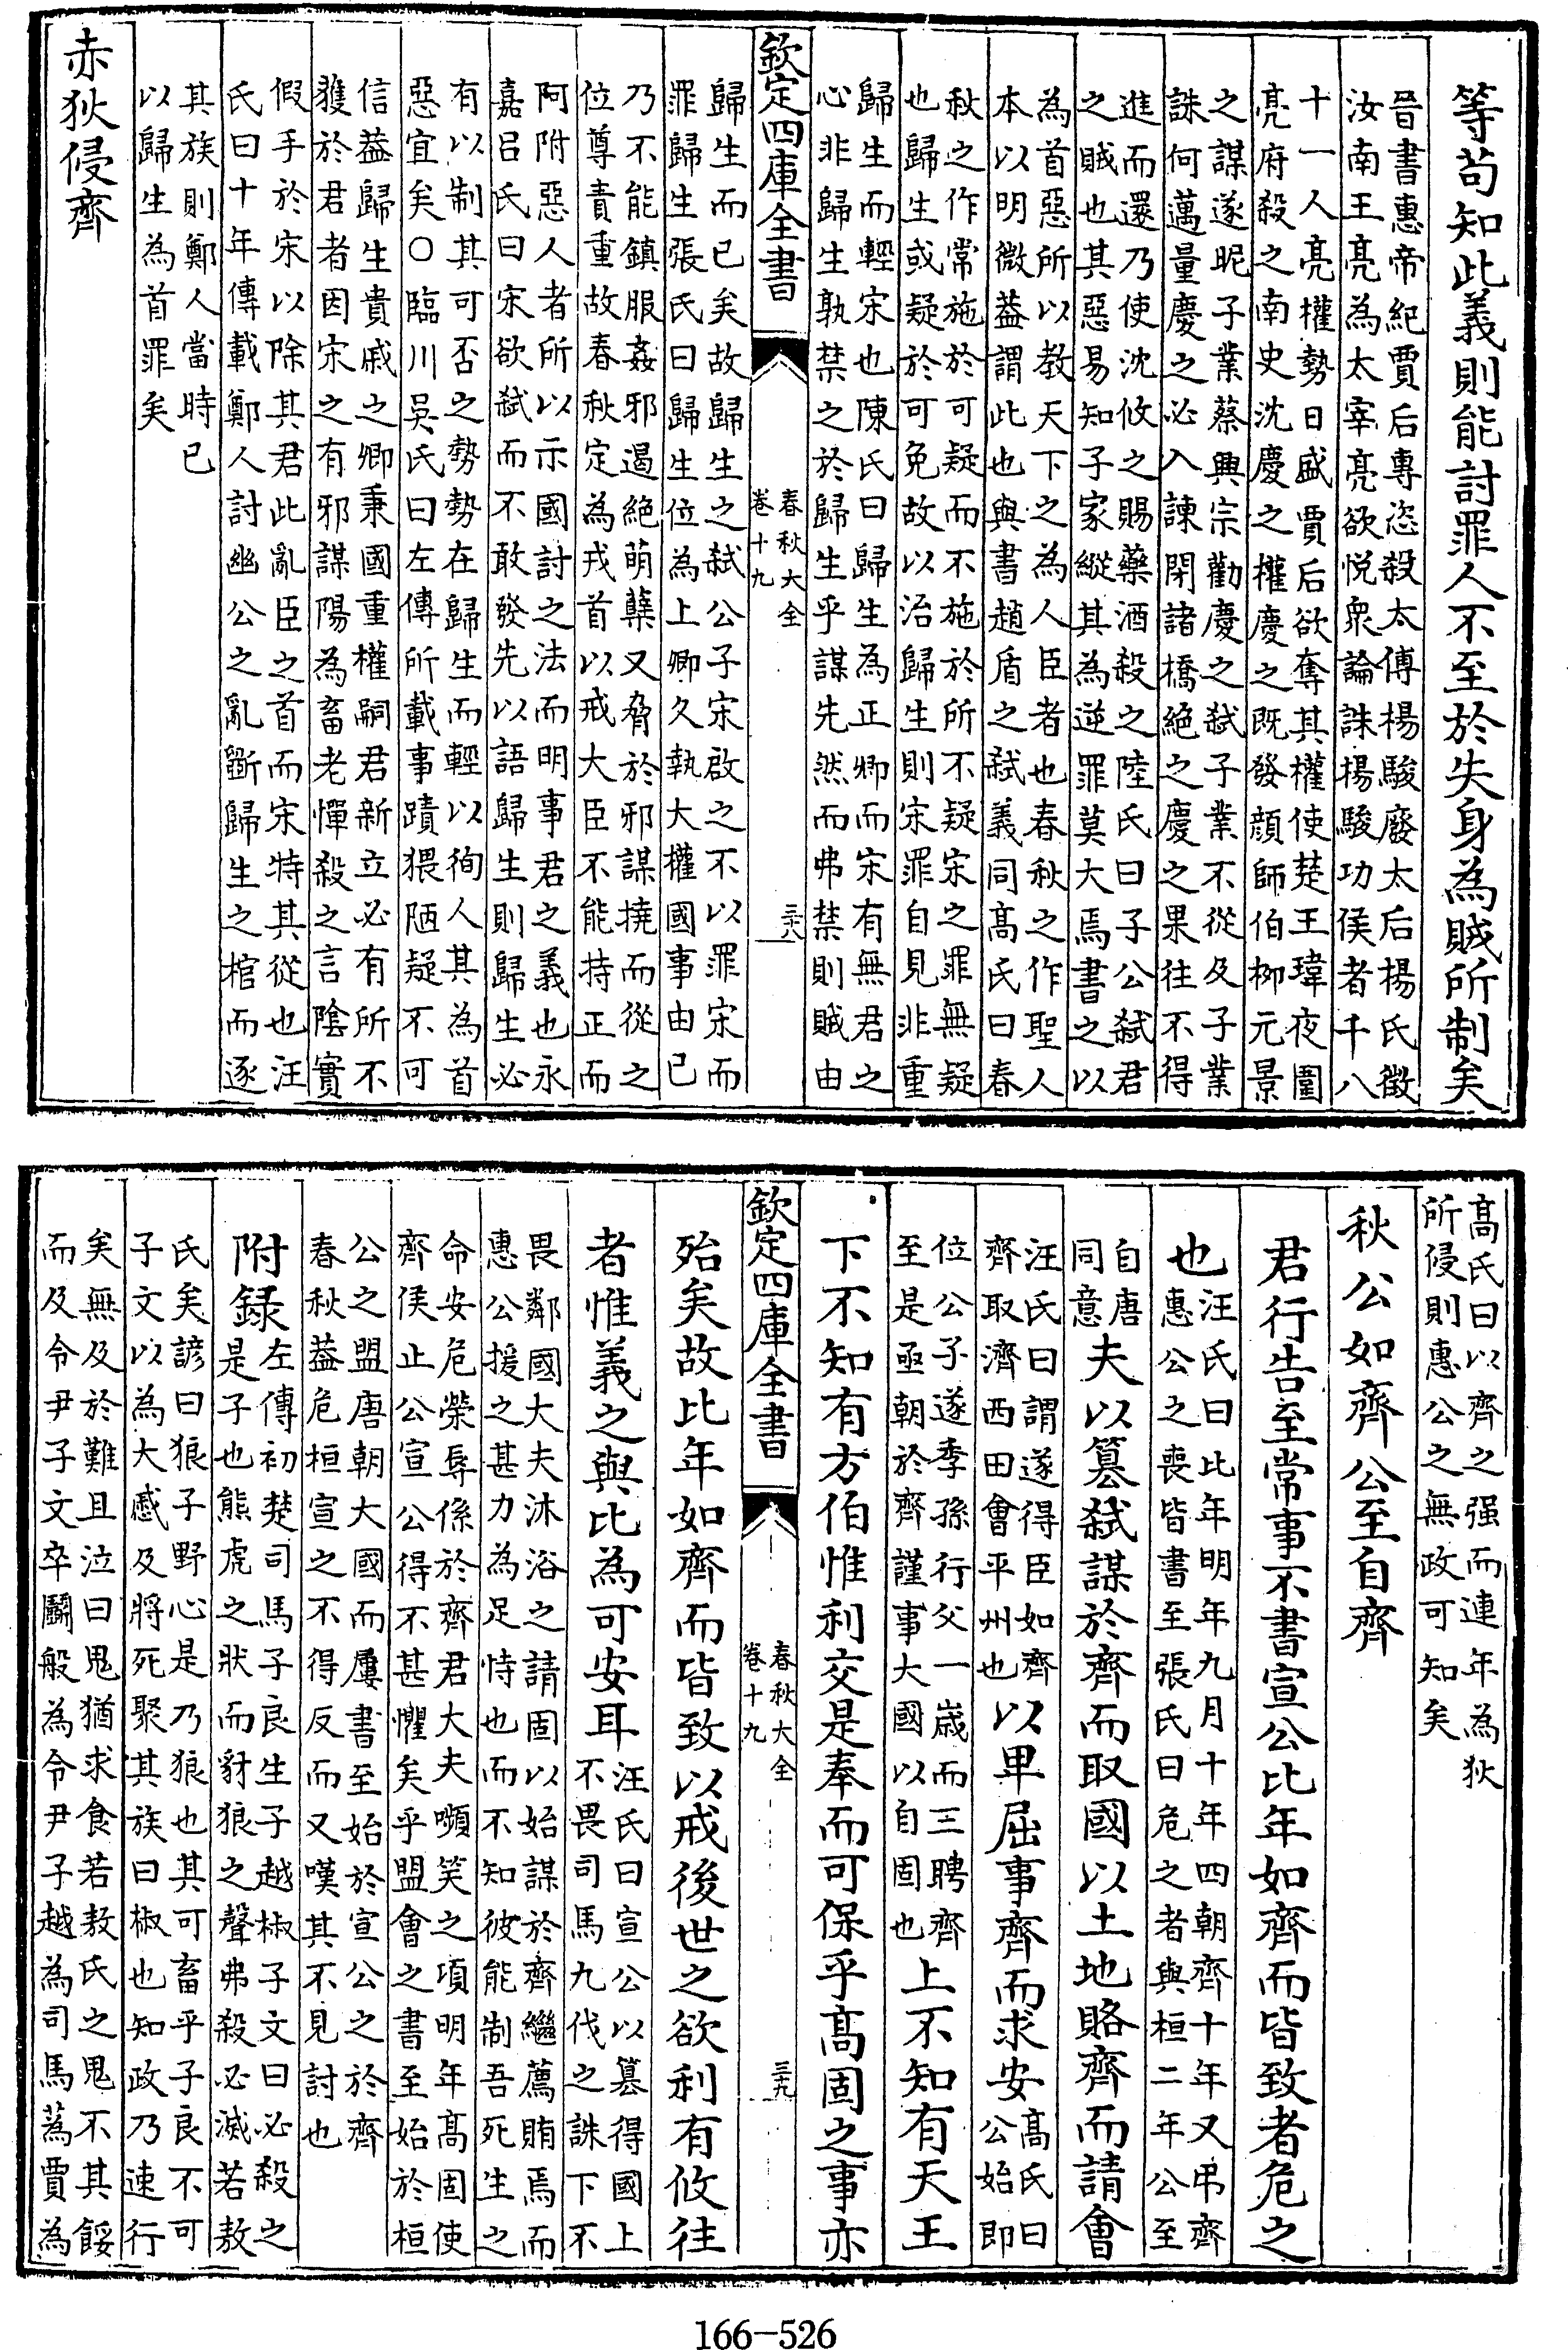 等苟知此義則能討罪人不至於失身為賊所制矣
晉書惠帝紀賈后專恣殺太傅楊駿廢太后楊氏徵
汝南王亮為太宰亮欲悅衆論誅楊駿功侯者千八
十一人亮權勢日盛賈后欲奪其權使楚王瑋夜圍
亮府殺之南史沈慶之權慶之既發顔師伯柳元景
之謀遂昵子業蔡興宗勸慶之弑子業不從及子業
誅何邁量慶之必入諫閉諸橋絶之慶之果往不得
進而還乃使沈攸之賜藥酒殺之陸氏曰子公弑君
之賊也其惡易知子家縱其為逆罪莫大焉書之以
為首惡所以教天下之為人臣者也春秋之作聖人
本以明微葢謂此也與書趙盾之弑義同高氏曰春
秋之作常施於可疑而不施於所不疑宋之罪無疑
也歸生或疑於可免故以治歸生則宋罪自見非重
歸生而輕宋也陳氏曰歸生為正卿而宋有無君之
心非歸生孰禁之於歸生乎謀先然而弗禁則賊由
欽定四庫全書
春秋大全
卷十九
三十八
歸生而已矣故歸生之弑公子宋啟之不以罪宋而
罪歸生張氏曰歸生位為上卿久執大權國事由已
乃不能鎮服姦邪遏絶萌蘖又脅於邪謀撓而從之
位尊責重故春秋定為戎首以戒大臣不能持正而
阿附惡人者所以示國討之法而明事君之義也永
嘉呂氏曰宋欲弑而不敢發先以語歸生則歸生必
有以制其可否之勢勢在歸生而輕以徇人其為首
惡宜矣○臨川吳氏曰左傳所載事蹟猥陋疑不可
信葢歸生貴戚之卿秉國重權嗣君新立必有所不
獲於君者因宋之有邪謀陽為畜老憚殺之言陰實
假手於宋以除其君此亂臣之首而宋特其從也汪
氏曰十年傳載鄭人討幽公之亂斵歸生之棺而逐
其族則鄭人當時已
以歸生為首罪矣
赤狄侵齊
高氏曰以齊之强而連年為狄
所侵則惠公之無政可知矣
秋公如齊公至自齊
君行告至常事不書宣公比年如齊而皆致者危之
也
汪氏曰此年明年九月十年四朝齊十年又弔齊
惠公之喪皆書至張氏曰危之者與桓二年公至
自唐
同意
夫以簒弑謀於齊而取國以土地賂齊而請會
汪氏曰謂遂得臣如齊
齊取濟西田會平州也
以卑屈事齊而求安
高氏曰
公始即
位公子遂季孫行父一歲而三聘齊
至是亟朝於齊謹事大國以自固也
上不知有天王
下不知有方伯惟利交是奉而可保乎高固之事亦
欽定四庫全書
春秋大全
卷十九
三十九
殆矣故比年如齊而皆致以戒後世之欲利有攸往
者惟義之與比為可安耳
汪氏曰宣公以簒得國上
不畏司馬九伐之誅下不
畏鄰國大夫沐浴之請固以始謀於齊繼薦賄焉而
惠公援之甚力為足恃也而不知彼能制吾死生之
命安危榮辱係於齊君大夫嚬笑之項明年高固使
齊侯止公宣公得不甚懼矣乎盟會之書至始於桓
公之盟唐朝大國而屢書至始於宣公之於齊
春秋葢危桓宣之不得反而又嘆其不見討也
附録
左傳初楚司馬子良生子越椒子文曰必殺之
是子也熊虎之狀而豺狼之聲弗殺必滅若敖
氏矣諺曰狼子野心是乃狼也其可畜乎子良不可
子文以為大慼及將死聚其族曰椒也知政乃速行
矣無及於難且泣曰鬼猶求食若敖氏之鬼不其餒
而及令尹子文卒鬭般為令尹子越為司馬蒍賈為
166-526